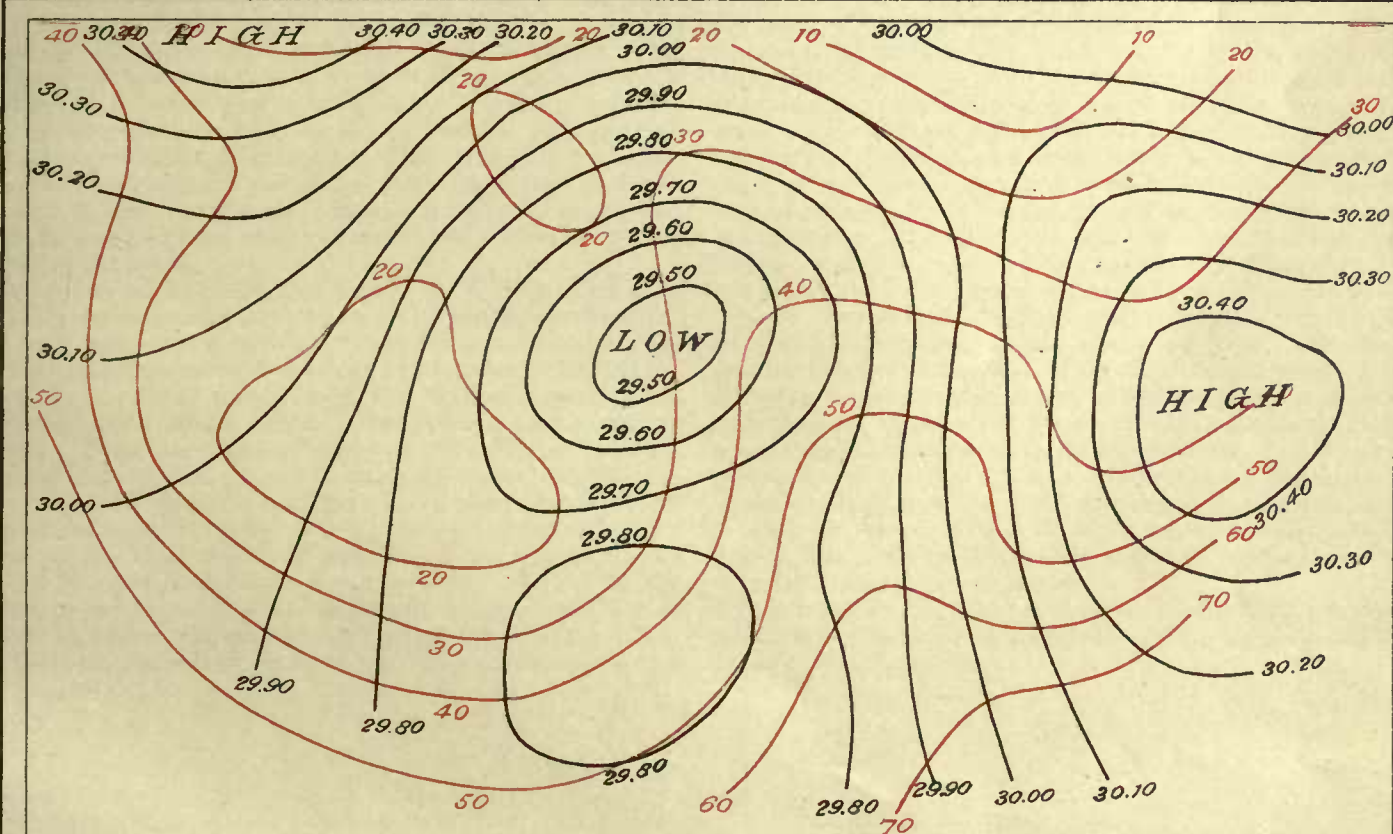 40 30.40 40 HIGH 30.40 30.30 30.20 20 30.10 20 10 30.00 10
30.00
20
20
30.30 29.90 30
30.00
29.80 30
30.10
30.20 29.70
30.20
20 29.60
20 29.50 30.30
40 30.40
LOW
30.10
29.50
50 50 HIGH
29.60
50
30.00 29.70 30.40
29.80 60
20 30.30
70
30
30.20
29.90
40
29.80
29.80
50 60 29.80 29.90 30.00 30.10
70